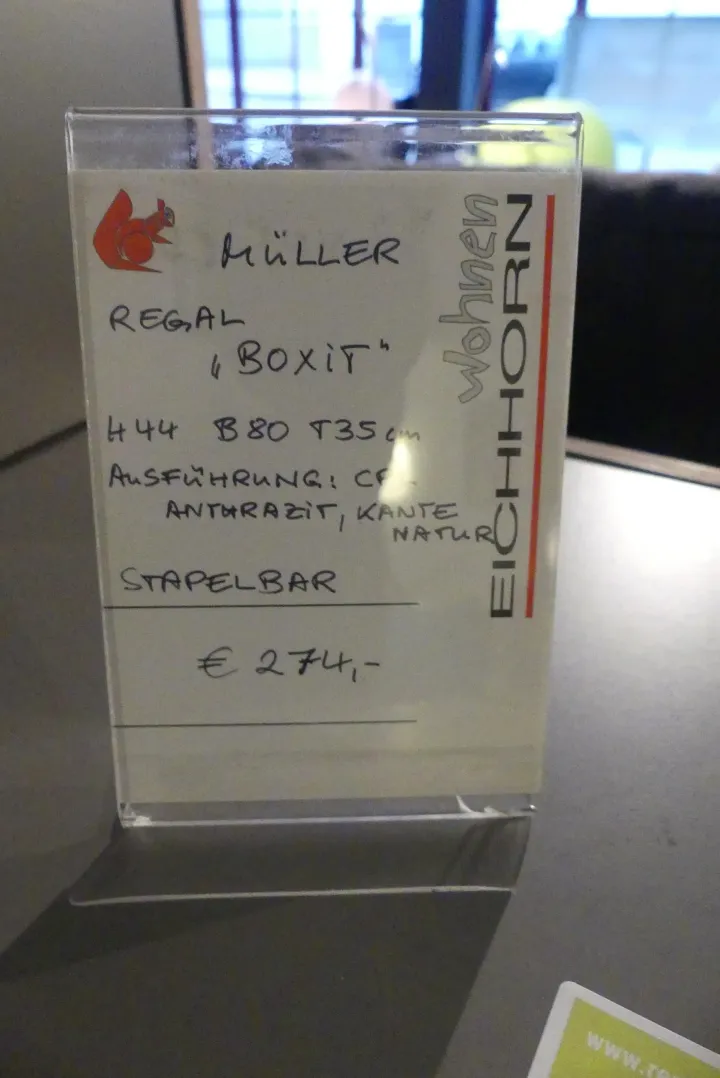 MÜLLER
REGAL
„BOXiT"
H44 B80 T35 cm
AUSFÜHRUNG:
ANTHRAZiT, KANTE
NATUR
STAPELBAR
€ 274,-
Wohnen
EICHHORN